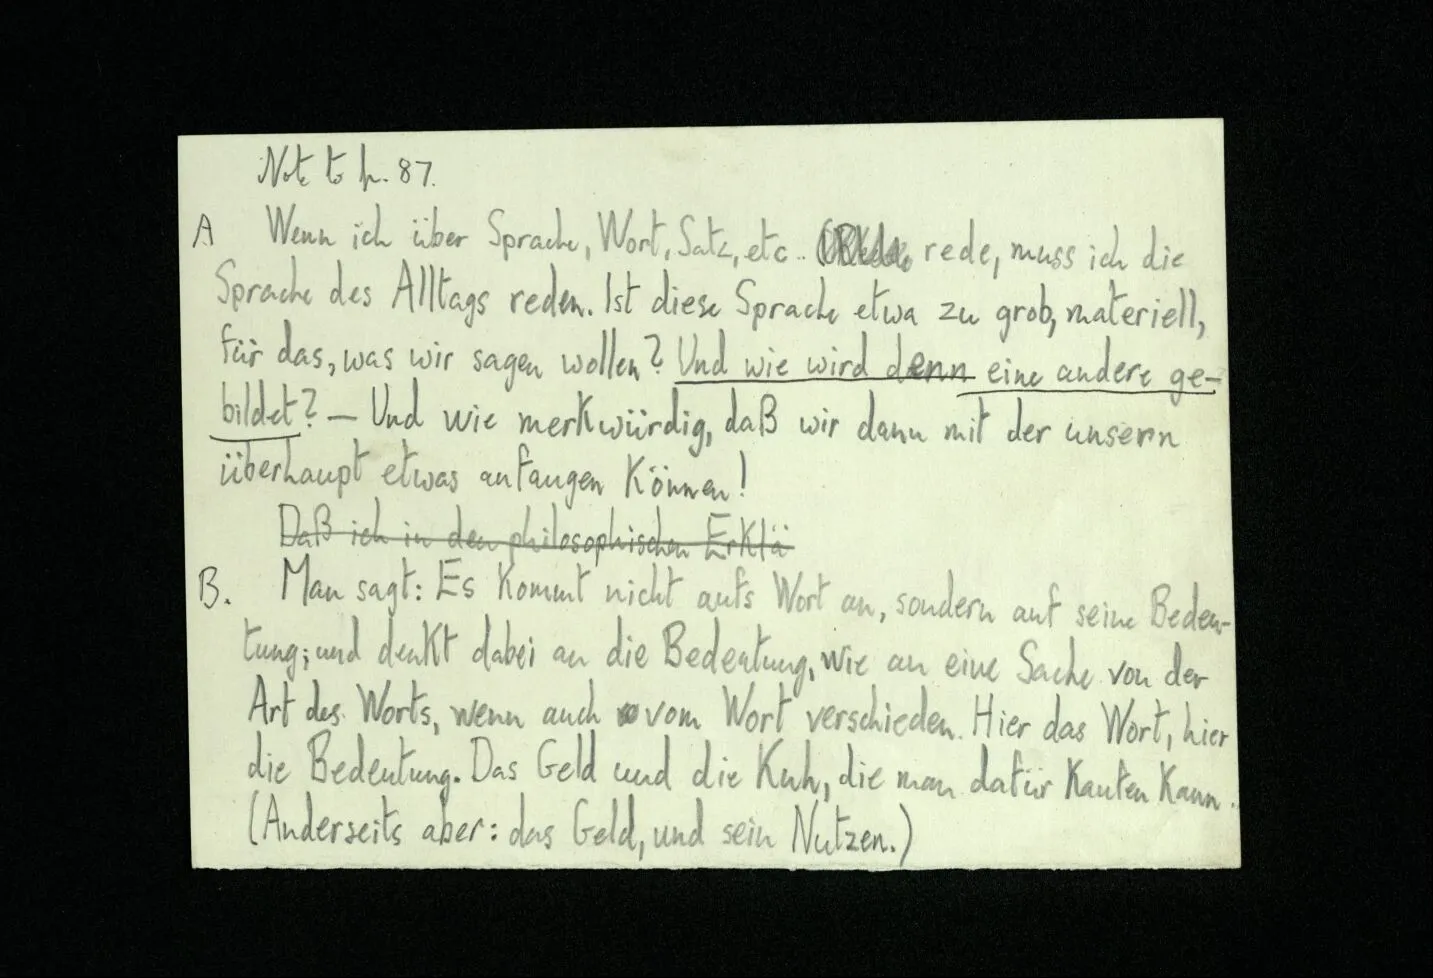 Note to p. 87.
A Wenn ich über Sprache, Wort, Satz, etc.. rede, muss ich die
Sprache des Alltags reden. Ist diese Sprache etwa zu grob, materiell,
für das, was wir sagen wollen? Und wie wird denn eine andere ge-
bildet? — Und wie merkwürdig, daß wir dann mit der unsern
überhaupt etwas anfangen können!
Daß ich in den philosophischen Erklä
B. Man sagt: Es kommt nicht aufs Wort an, sondern auf seine Bedeu-
tung; und denkt dabei an die Bedeutung, wie an eine Sache von der
Art des Worts, wenn auch vom Wort verschieden. Hier das Wort, hier
die Bedeutung. Das Geld und die Kuh, die man dafür kaufen kann.
(Anderseits aber: das Geld, und sein Nutzen.)